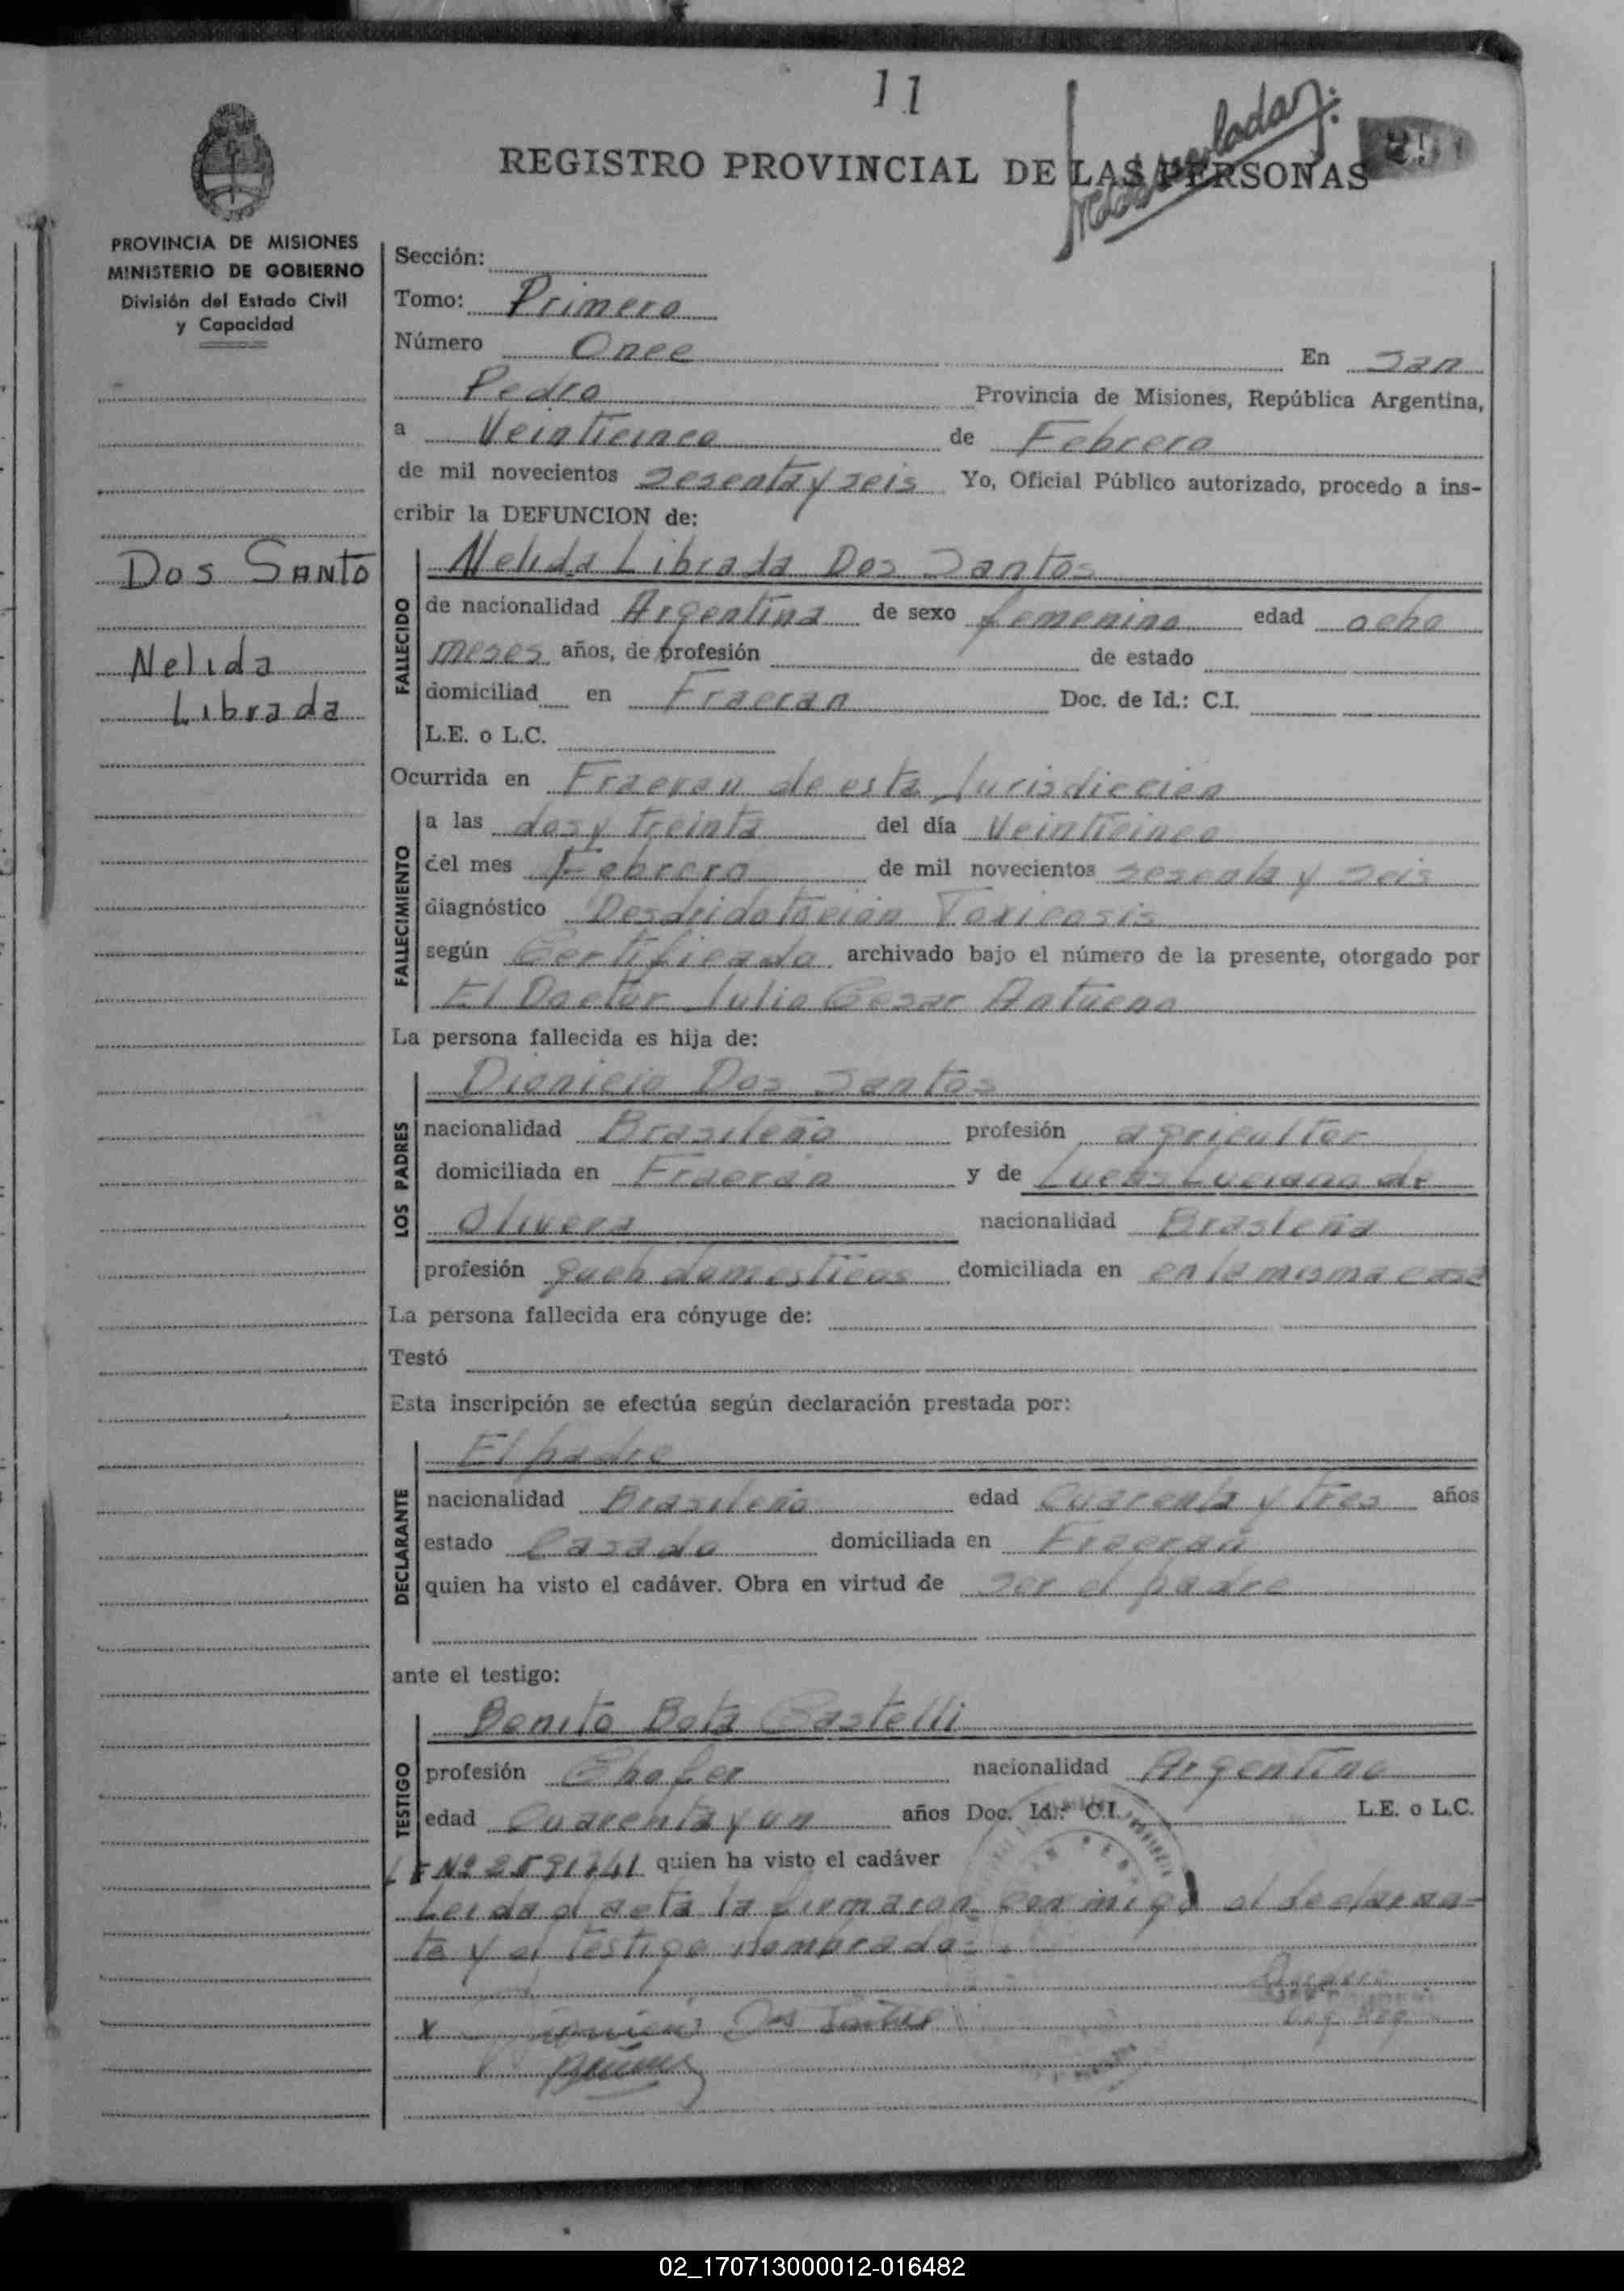 11
REGISTRO PROVINCIAL DE LAS PERSONAS
PROVINCIA DE MISIONES
MINISTERIO DE GOBIERNO
División del Estado Civil
y Capacidad
Dos Santo
Nelida
Librada
Sección:
Tomo: Primero
Número Once En San
Pedro Provincia de Misiones, República Argentina,
a Veinticinco de Febrero
de mil novecientos sesenta y seis Yo, Oficial Público autorizado, procedo a ins-
cribir la DEFUNCION de:
FALLECIDO
Nelida Librada Dos Santos
de nacionalidad Argentina de sexo femenino edad ocho
meses años, de profesión de estado
domiciliad en Fracran Doc. de Id.: C.I.
L.E. o L.C.
Ocurrida en Fracran de esta Jurisdiccion
FALLECIMIENTO
a las dos y treinta del día Veinticinco
del mes Febrero de mil novecientos sesenta y seis
diagnóstico Toxicosis
según Certificado archivado bajo el número de la presente, otorgado por
El Doctor Julio Cesar
La persona fallecida es hija de:
LOS PADRES
Dionicio Dos Santos
nacionalidad Brasileño profesión agricultor
domiciliada en Fracran y de Luciana de
Olivera nacionalidad Brasleña
profesión domesticos domiciliada en en la misma casa
La persona fallecida era cónyuge de:
Testó
Esta inscripción se efectúa según declaración prestada por:
DECLARANTE
El padre
nacionalidad Brasileño edad Cuarenta y tres años
estado Casado domiciliada en Fracran
quien ha visto el cadáver. Obra en virtud de ser el padre
ante el testigo:
TESTIGO
Benito Bota Castelli
profesión Chofer nacionalidad Argentino
edad Cuarenta y un años Doc. Id.: C.I. L.E. o L.C.
quien ha visto el cadáver
Leida el acta la firmaron conmigo el declaran-
te y el testigo nombrado
Dos Santos
02_170713000012-016482